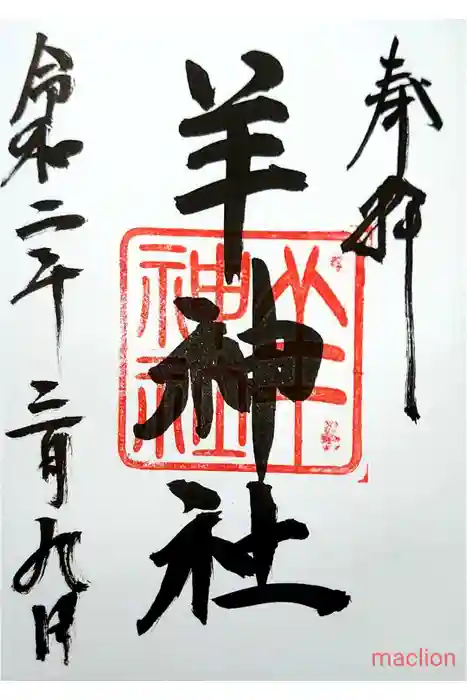 奉拝
羊神社
羊神社
令和二年
三月九日
maclion